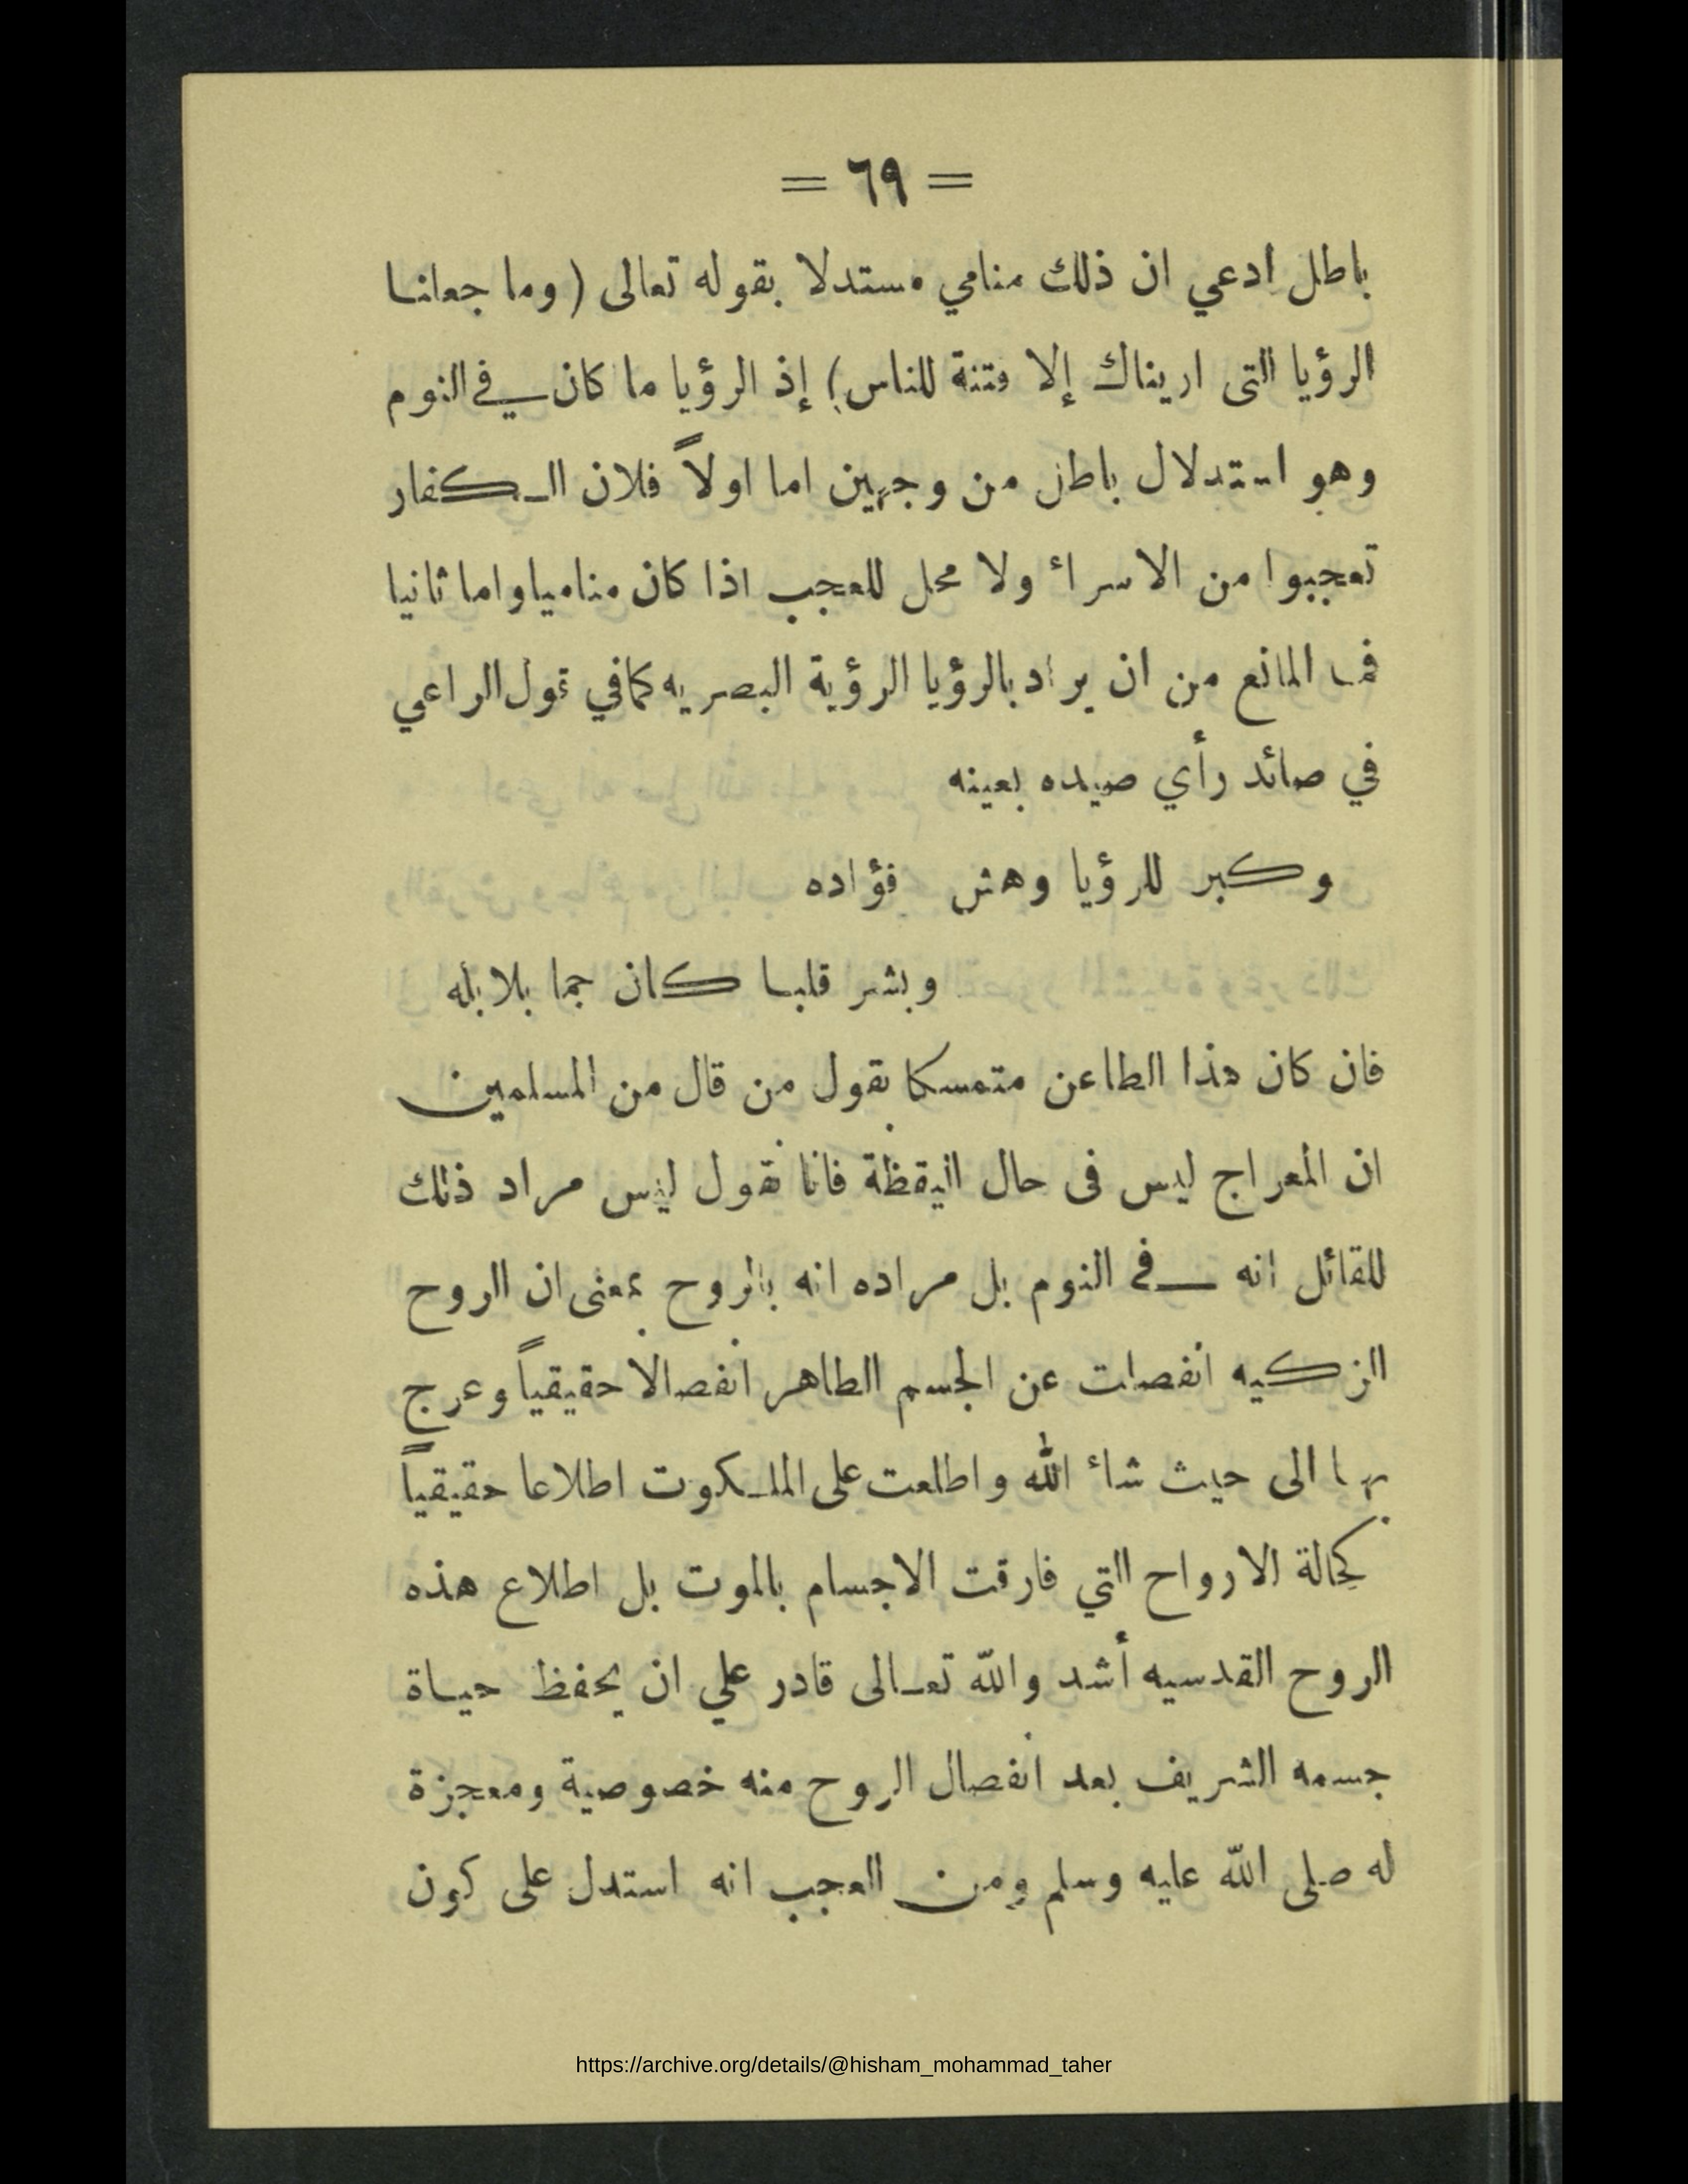 = ٦٩ =
باطل ادعي ان ذلك منامي مستدلا بقوله تعالى (وما جعلنا
الرؤيا التى اريناك إلا فتنة للناس) إذ الرؤيا ما كان في النوم
وهو استدلال باطل من وجهين اما اولاً فلان الكفار
تعجبوا من الاسراء ولا محل للعجب اذا كان مناميا واما ثانيا
فما المانع من ان يراد بالرؤيا الرؤية البصريه كما في قول الراعي
في صائد رأي صيده بعينه
وكبر للرؤيا وهش فؤاده
وبشر قلبا كان جما بلابله
فان كان هذا الطاعن متمسكا بقول من قال من المسلمين
ان المعراج ليس فى حال اليقظة فانا نقول ليس مراد ذلك
للقائل انه في النوم بل مراده انه بالروح بمعنى ان الروح
الزكيه انفصلت عن الجسم الطاهر انفصالا حقيقياً وعرج
بها الى حيث شاء الله واطلعت على الملكوت اطلاعا حقيقياً
كحالة الارواح التي فارقت الاجسام بالموت بل اطلاع هذه
الروح القدسيه أشد والله تعالى قادر علي ان يحفظ حياة
جسمه الشريف بعد انفصال الروح منه خصوصية ومعجزة
له صلى الله عليه وسلم ومن العجب انه استدل على كون
https://archive.org/details/@hisham_mohammad_taher